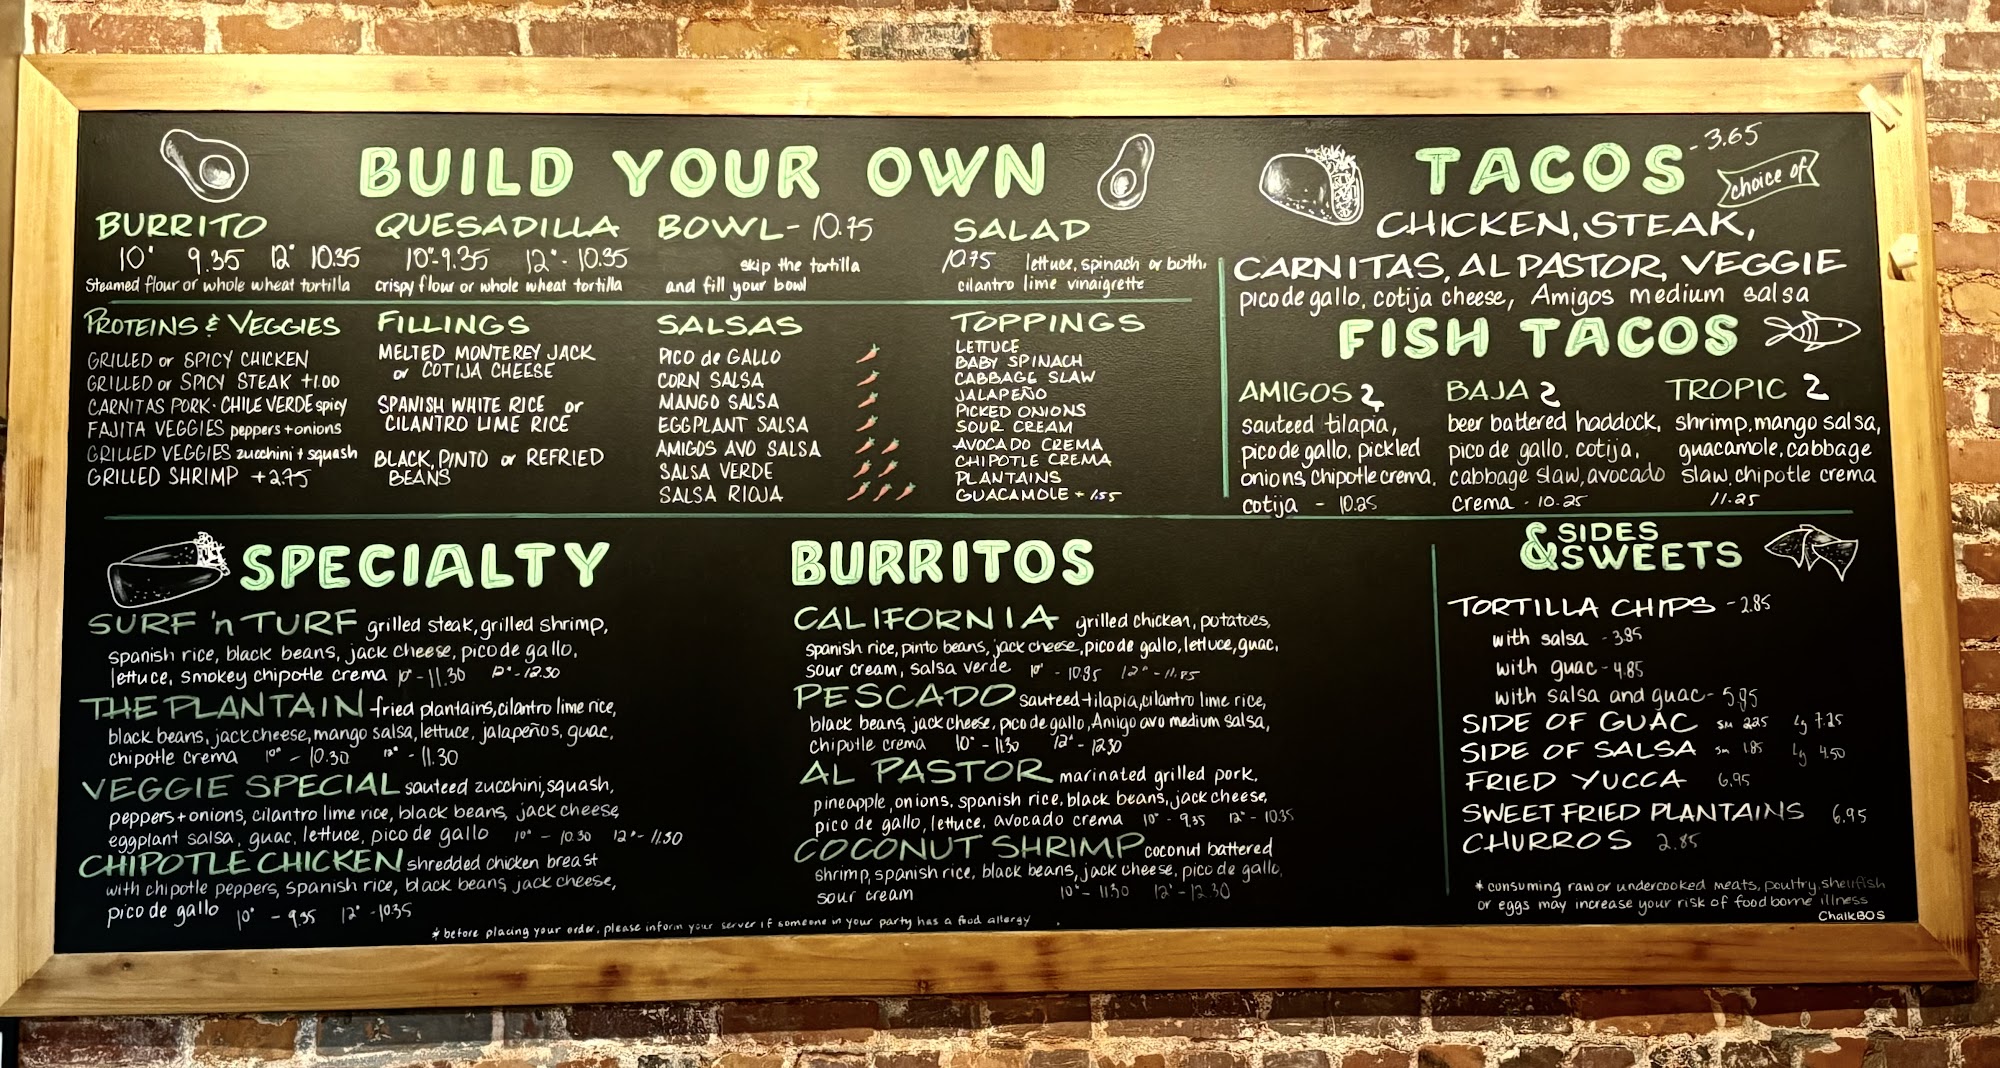 BUILD YOUR OWN
BURRITO
10" 9.35 12" 10.35
Steamed flour or whole wheat tortilla
QUESADILLA
10"-9.35 12"-10.35
crispy flour or whole wheat tortilla
BOWL- 10.75
skip the tortilla
and fill your bowl
SALAD
10.75 lettuce, spinach or both,
cilantro lime vinaigrette
PROTEINS & VEGGIES
GRILLED or SPICY CHICKEN
GRILLED or SPICY STEAK +1.00
CARNITAS PORK · CHILE VERDE spicy
FAJITA VEGGIES peppers + onions
GRILLED VEGGIES zucchini + squash
GRILLED SHRIMP +2.75
FILLINGS
MELTED MONTEREY JACK
or COTIJA CHEESE
SPANISH WHITE RICE or
CILANTRO LIME RICE
BLACK, PINTO or REFRIED
BEANS
SALSAS
PICO de GALLO
CORN SALSA
MANGO SALSA
EGGPLANT SALSA
AMIGOS AVO SALSA
SALSA VERDE
SALSA RIOJA
TOPPINGS
LETTUCE
BABY SPINACH
CABBAGE SLAW
JALAPEÑO
PICKED ONIONS
SOUR CREAM
AVOCADO CREMA
CHIPOTLE CREMA
PLANTAINS
GUACAMOLE + 1.55
TACOS - 3.65
choice of
CHICKEN, STEAK,
CARNITAS, AL PASTOR, VEGGIE
pico de gallo, cotija cheese, Amigos medium salsa
FISH TACOS
AMIGOS 2
sauteed tilapia,
pico de gallo, pickled
onions, chipotle crema,
cotija - 10.25
BAJA 2
beer battered haddock,
pico de gallo, cotija,
cabbage slaw, avocado
crema - 10.25
TROPIC 2
shrimp, mango salsa,
guacamole, cabbage
slaw, chipotle crema
11.25
SPECIALTY BURRITOS
SURF 'n TURF grilled steak, grilled shrimp,
spanish rice, black beans, jack cheese, pico de gallo,
lettuce, smokey chipotle crema 10" - 11.30 12" - 12.30
THE PLANTAIN fried plantains, cilantro lime rice,
black beans, jack cheese, mango salsa, lettuce, jalapeños, guac,
chipotle crema 10" - 10.30 12" - 11.30
VEGGIE SPECIAL sauteed zucchini, squash,
peppers + onions, cilantro lime rice, black beans, jack cheese,
eggplant salsa, guac, lettuce, pico de gallo 10" - 10.30 12" - 11.30
CHIPOTLE CHICKEN shredded chicken breast
with chipotle peppers, spanish rice, black beans, jack cheese,
pico de gallo 10" - 9.35 12" - 10.35
CALIFORNIA grilled chicken, potatoes,
spanish rice, pinto beans, jack cheese, pico de gallo, lettuce, guac,
sour cream, salsa verde 10" - 10.85 12" - 11.85
PESCADO sauteed tilapia, cilantro lime rice,
black beans, jack cheese, pico de gallo, Amigo avo medium salsa,
chipotle crema 10" - 11.30 12" - 12.30
AL PASTOR marinated grilled pork,
pineapple, onions, spanish rice, black beans, jack cheese,
pico de gallo, lettuce, avocado crema 10" - 9.35 12" - 10.35
COCONUT SHRIMP coconut battered
shrimp, spanish rice, black beans, jack cheese, pico de gallo,
sour cream 10" - 11.30 12" - 12.30
* before placing your order, please inform your server if someone in your party has a food allergy
SIDES
& SWEETS
TORTILLA CHIPS - 2.85
with salsa - 3.85
with guac - 4.85
with salsa and guac - 5.95
SIDE OF GUAC sm 2.25 Lg 7.25
SIDE OF SALSA sm 1.85 Lg 4.50
FRIED YUCCA 6.95
SWEET FRIED PLANTAINS 6.95
CHURROS 2.85
* consuming raw or undercooked meats, poultry, shellfish
or eggs may increase your risk of food borne illness
ChalkBOS